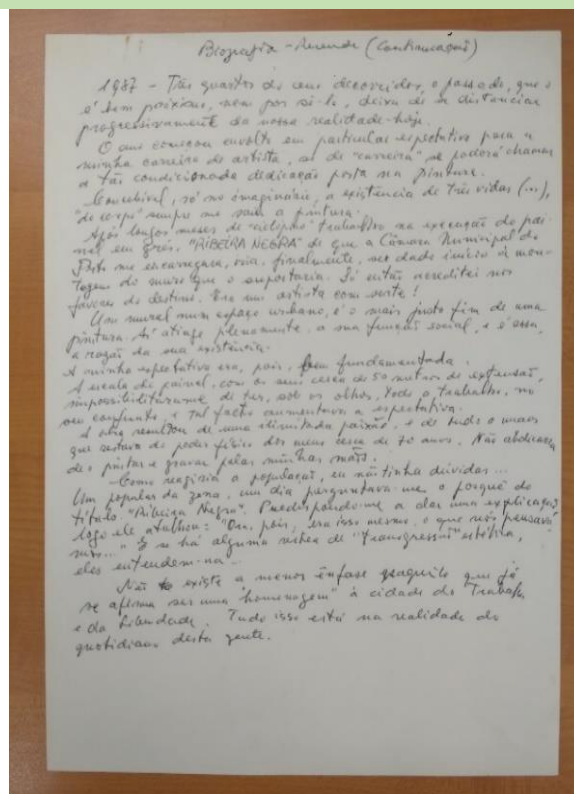 Biografia - Resende (Continuação)
1987 - Três quartos do ano decorridos, o passado, que é
é bem próximo, nem por sê-lo, deixa de se distanciar
progressivamente da nossa realidade-hoje.
O ano começou envolto em particular expectativa para a
minha carreira de artista, se de "carreira" se poderá chamar
a tão condicionada dedicação posta na pintura.
Concebível, só no imaginário, a existência de três vidas (...),
"de corpo" sempre me sem a pintura.
Após longos meses de "ciclópico" trabalho na execução do pai-
nel em grés, "RIBEIRA NEGRA" de que a Câmara Municipal do
Porto me encarregara, vira, finalmente, ser dado início à mon-
tagem do muro que o suportaria. Só então acreditei nos
favores do destino. Era um artista com sorte!
Um mural num espaço urbano, é o mais justo fim de uma
pintura. Aí atinge plenamente, a sua função social, e é essa,
a razão da sua existência.
A minha expectativa era, pois, bem fundamentada.
A escala do painel, com os seus cerca de 50 metros de extensão,
impossibilitara-me de ter, sob os olhos, todo o trabalho, no
seu conjunto, e tal facto aumentava a expectativa.
A obra resultou de uma ilimitada paixão, e de tudo o mais
que restava do poder físico dos meus cerca de 70 anos. Não abdicara
de o pintar e gravar pelas minhas mãos.
- Como reagiria a população, eu não tinha dúvidas...
Um popular da zona, um dia perguntava-me o porquê do
título "Ribeira Negra". Predispondo-me a dar uma explicação,
logo ele atalhou: "Ora, pois, era isso mesmo, o que nós pensáva-
mos..." E se há alguma de "transgressão" estética,
eles entendem-na...
Não existe a menor ênfase naquilo que já
se afirma ser uma "homenagem" à cidade do Trabalho
e da Liberdade. Tudo isso está na realidade do
quotidiano desta gente.